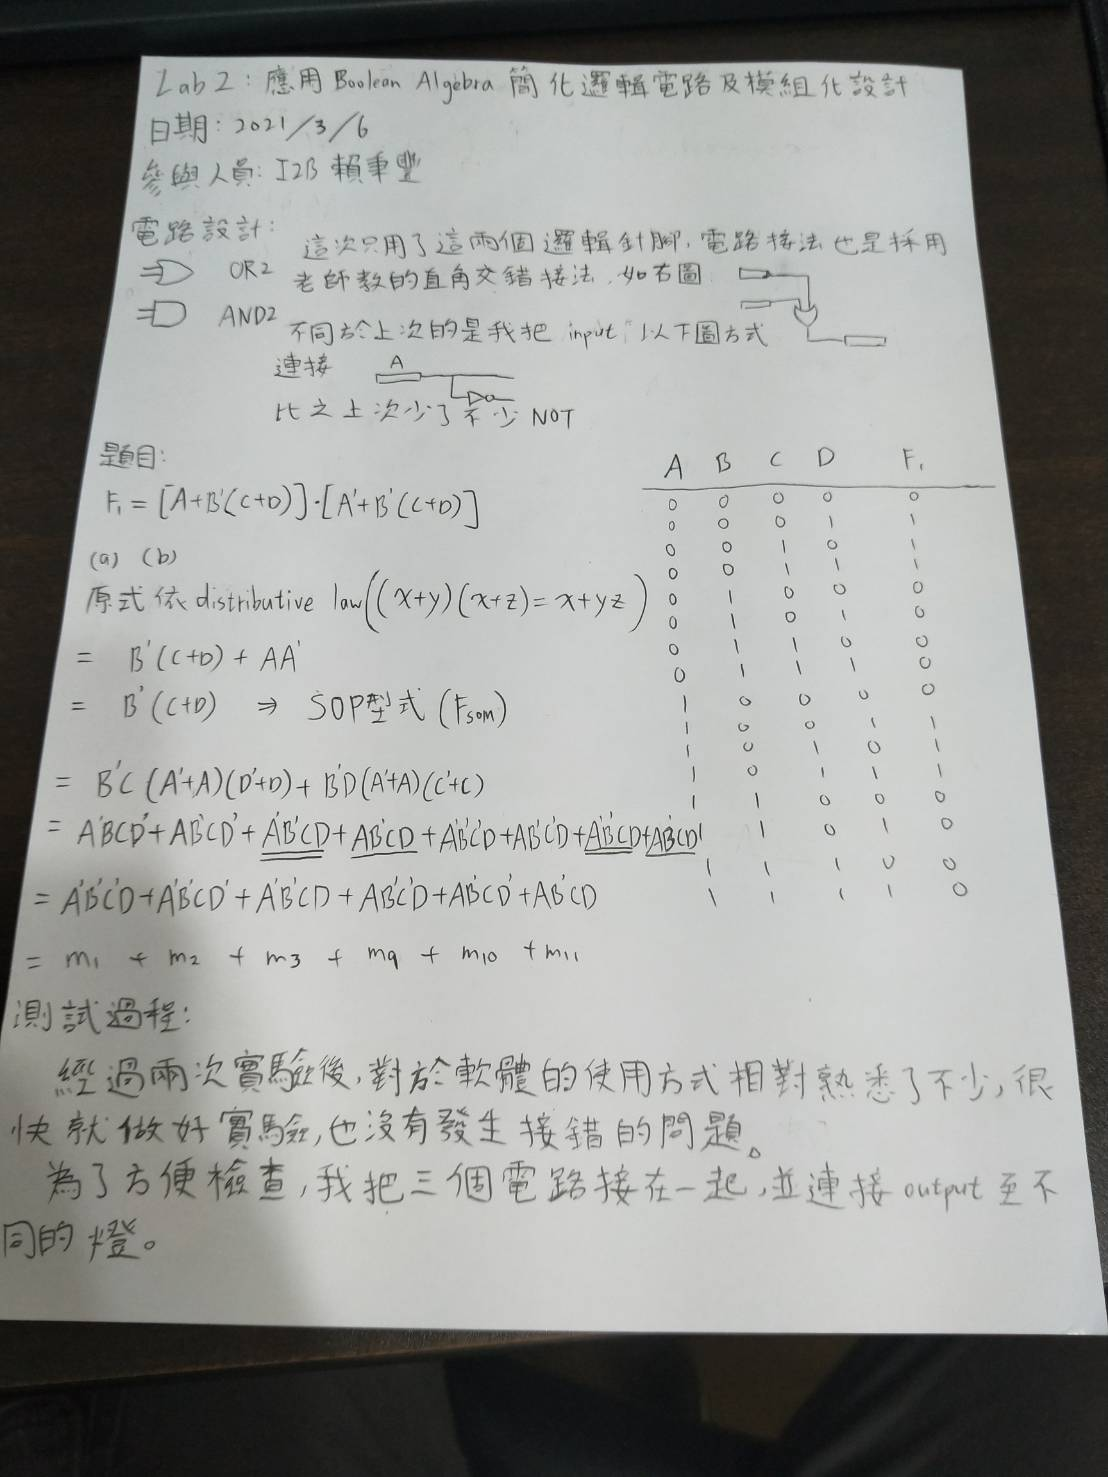 Lab 2：應用 Boolean Algebra 簡化邏輯電路及模組化設計
日期：2021/3/6
參與人員：I2B 賴秉豐
電路設計：
這次只用了這兩個邏輯針腳，電路接法也是採用
OR2 老師教的直角交錯接法，如右圖
AND2 不同於上次的是我把 input 以下圖方式
連接 A
比之上次少了不少 NOT
題目：
F₁ = [A+B'(C+D)]·[A'+B'(C+D)]
(a) (b)
原式依 distributive law((x+y)(x+z)=x+yz)
= B'(C+D) + AA'
= B'(C+D) ⇒ SOP型式 (Fsom)
= B'C(A'+A)(D'+D) + B'D(A'+A)(C'+C)
= A'B'CD' + AB'CD' + A'B'CD + AB'CD + A'B'C'D + AB'C'D + A'B'CD + AB'CD
= A'B'C'D + A'B'CD' + A'B'CD + AB'C'D + AB'CD' + AB'CD
= m₁ + m₂ + m₃ + m₉ + m₁₀ + m₁₁
A B C D F₁
0 0 0 0 0
0 0 0 1 1
0 0 1 0 1
0 0 1 1 1
0 1 0 0 0
0 1 0 1 0
0 1 1 0 0
0 1 1 1 0
1 0 0 0 0
1 0 0 1 1
1 0 1 0 1
1 0 1 1 1
1 1 0 0 0
1 1 0 1 0
1 1 1 0 0
1 1 1 1 0
測試過程：
經過兩次實驗後，對於軟體的使用方式相對熟悉了不少，很
快就做好實驗，也沒有發生接錯的問題。
為了方便檢查，我把三個電路接在一起，並連接 output 至不
同的燈。